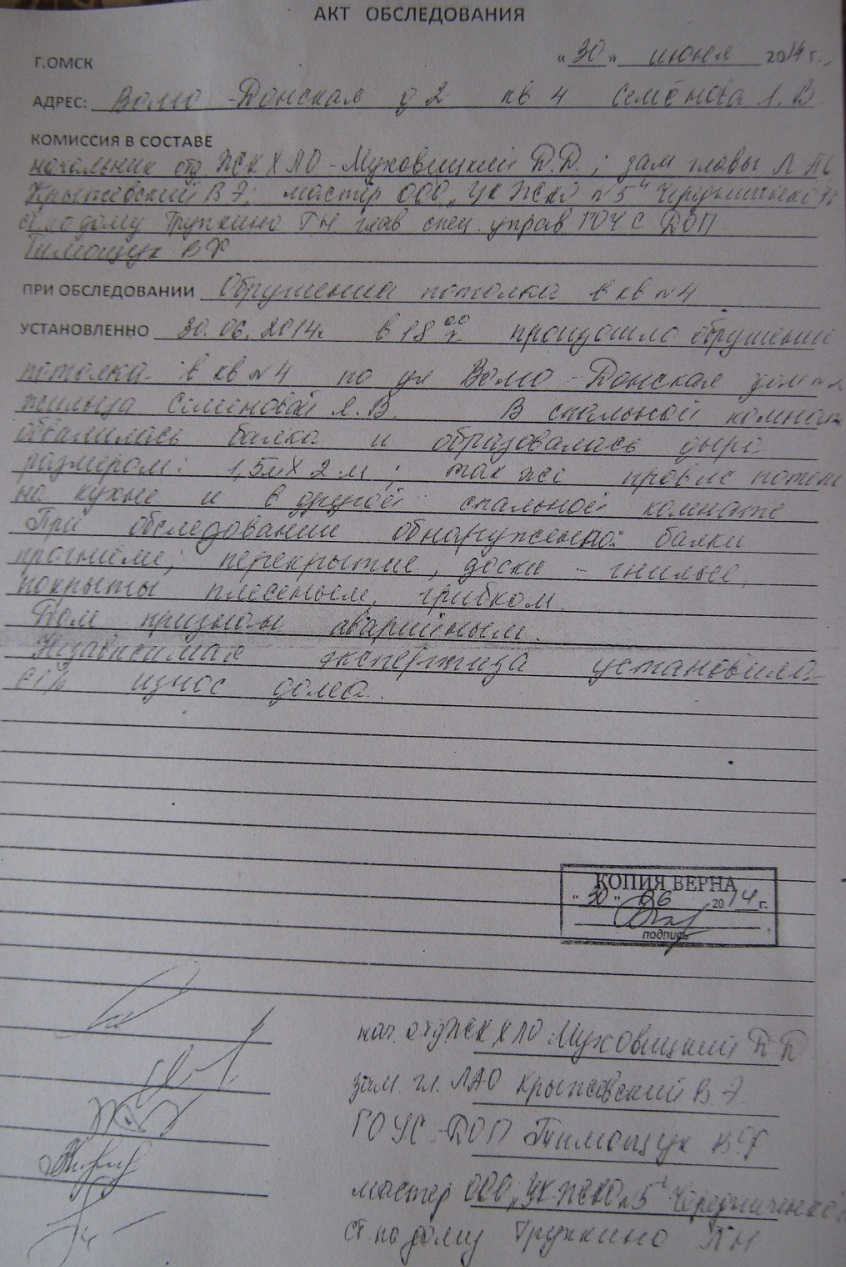 АКТ ОБСЛЕДОВАНИЯ
Г.ОМСК «30» июня 2014 г.,
АДРЕС: Волго-Донская д 2 кв 4 Семёнова Л. В.
КОМИССИЯ В СОСТАВЕ
начальник отд ЖСКХ ЛО - Муховицкий Д.Д.; зам главы ЛАО
Крыжевский В Э; мастер ООО „УК ЖСКО №5" Чередниченко
ст. по дому Трупкино ГН глав спец. управ ГОЧС ДОП
Тимощук ВФ
ПРИ ОБСЛЕДОВАНИИ Обрушения потолка в кв №4
УСТАНОВЛЕННО 30.06.2014г. в 18 00 произошло обрушение
потолка в кв №4 по ул Волго-Донская дом
жильца Семеновой Л.В. В спальной комнате
обвалилась балка и образовалась дыра
размером: 1,5м Х 2 м; так же провис потолок
на кухне и в другой спальной комнате
При обследовании обнаруженно: балки
прогнили; перекрытие, доски - гнилые,
покрыты плесенью, грибком.
Дом признан аварийным.
Независимая экспертиза установила
износ дома.
КОПИЯ ВЕРНА
"30" 06 2014 г.
подпись
нач. отд ЖСКХ ЛО Муховицкий Д Д
зам. гл. ЛАО Крыжевский В Э.
ГОЧС-ДОП Тимощук ВФ
мастер ООО „УК ЖСКО №5" Чередниченко
ст. по дому